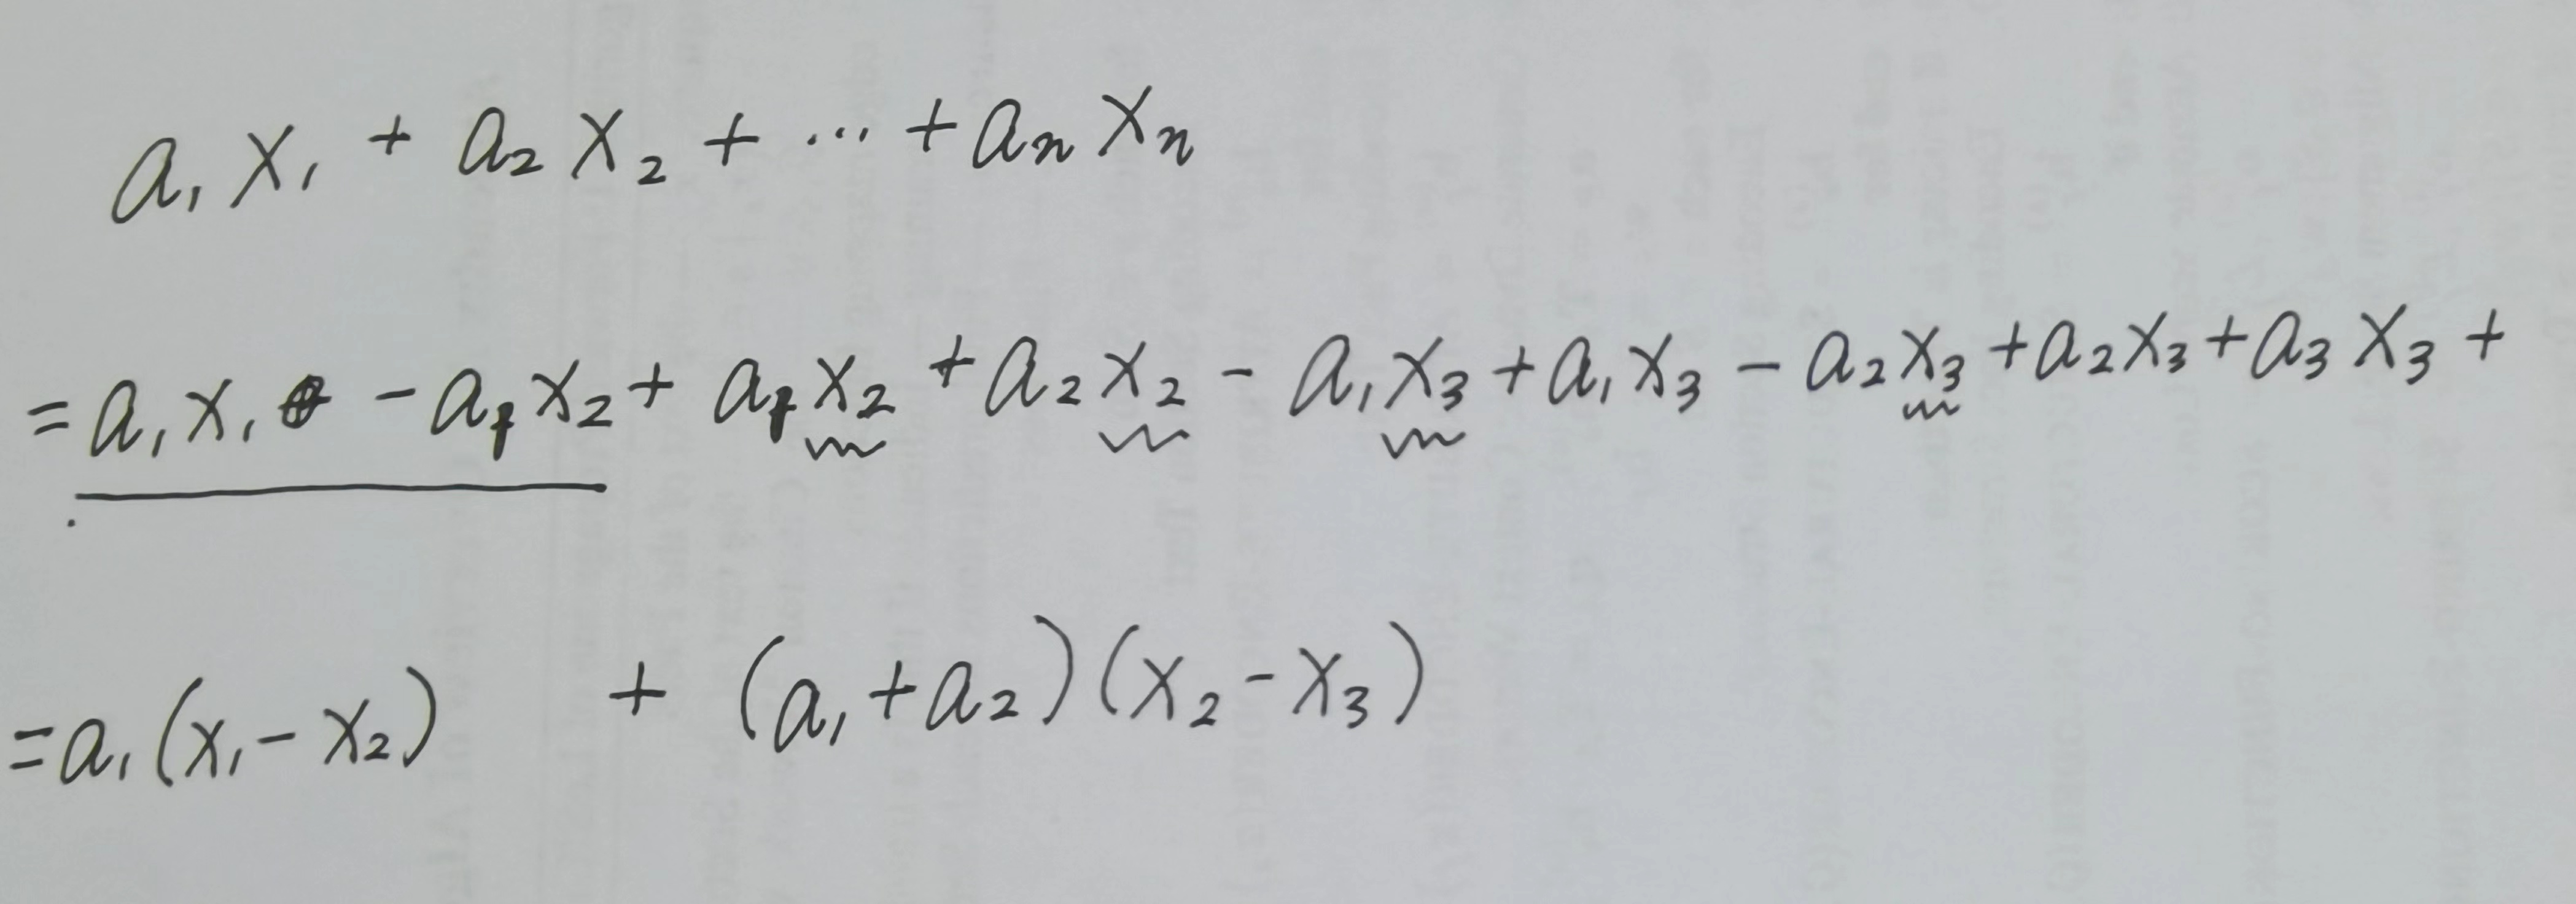 a₁x₁ + a₂x₂ + ⋯ + aₙxₙ
= a₁x₁ - a₁x₂ + a₁x₂ + a₂x₂ - a₁x₃ + a₁x₃ - a₂x₃ + a₂x₃ + a₃x₃ +
= a₁(x₁ - x₂) + (a₁ + a₂)(x₂ - x₃)